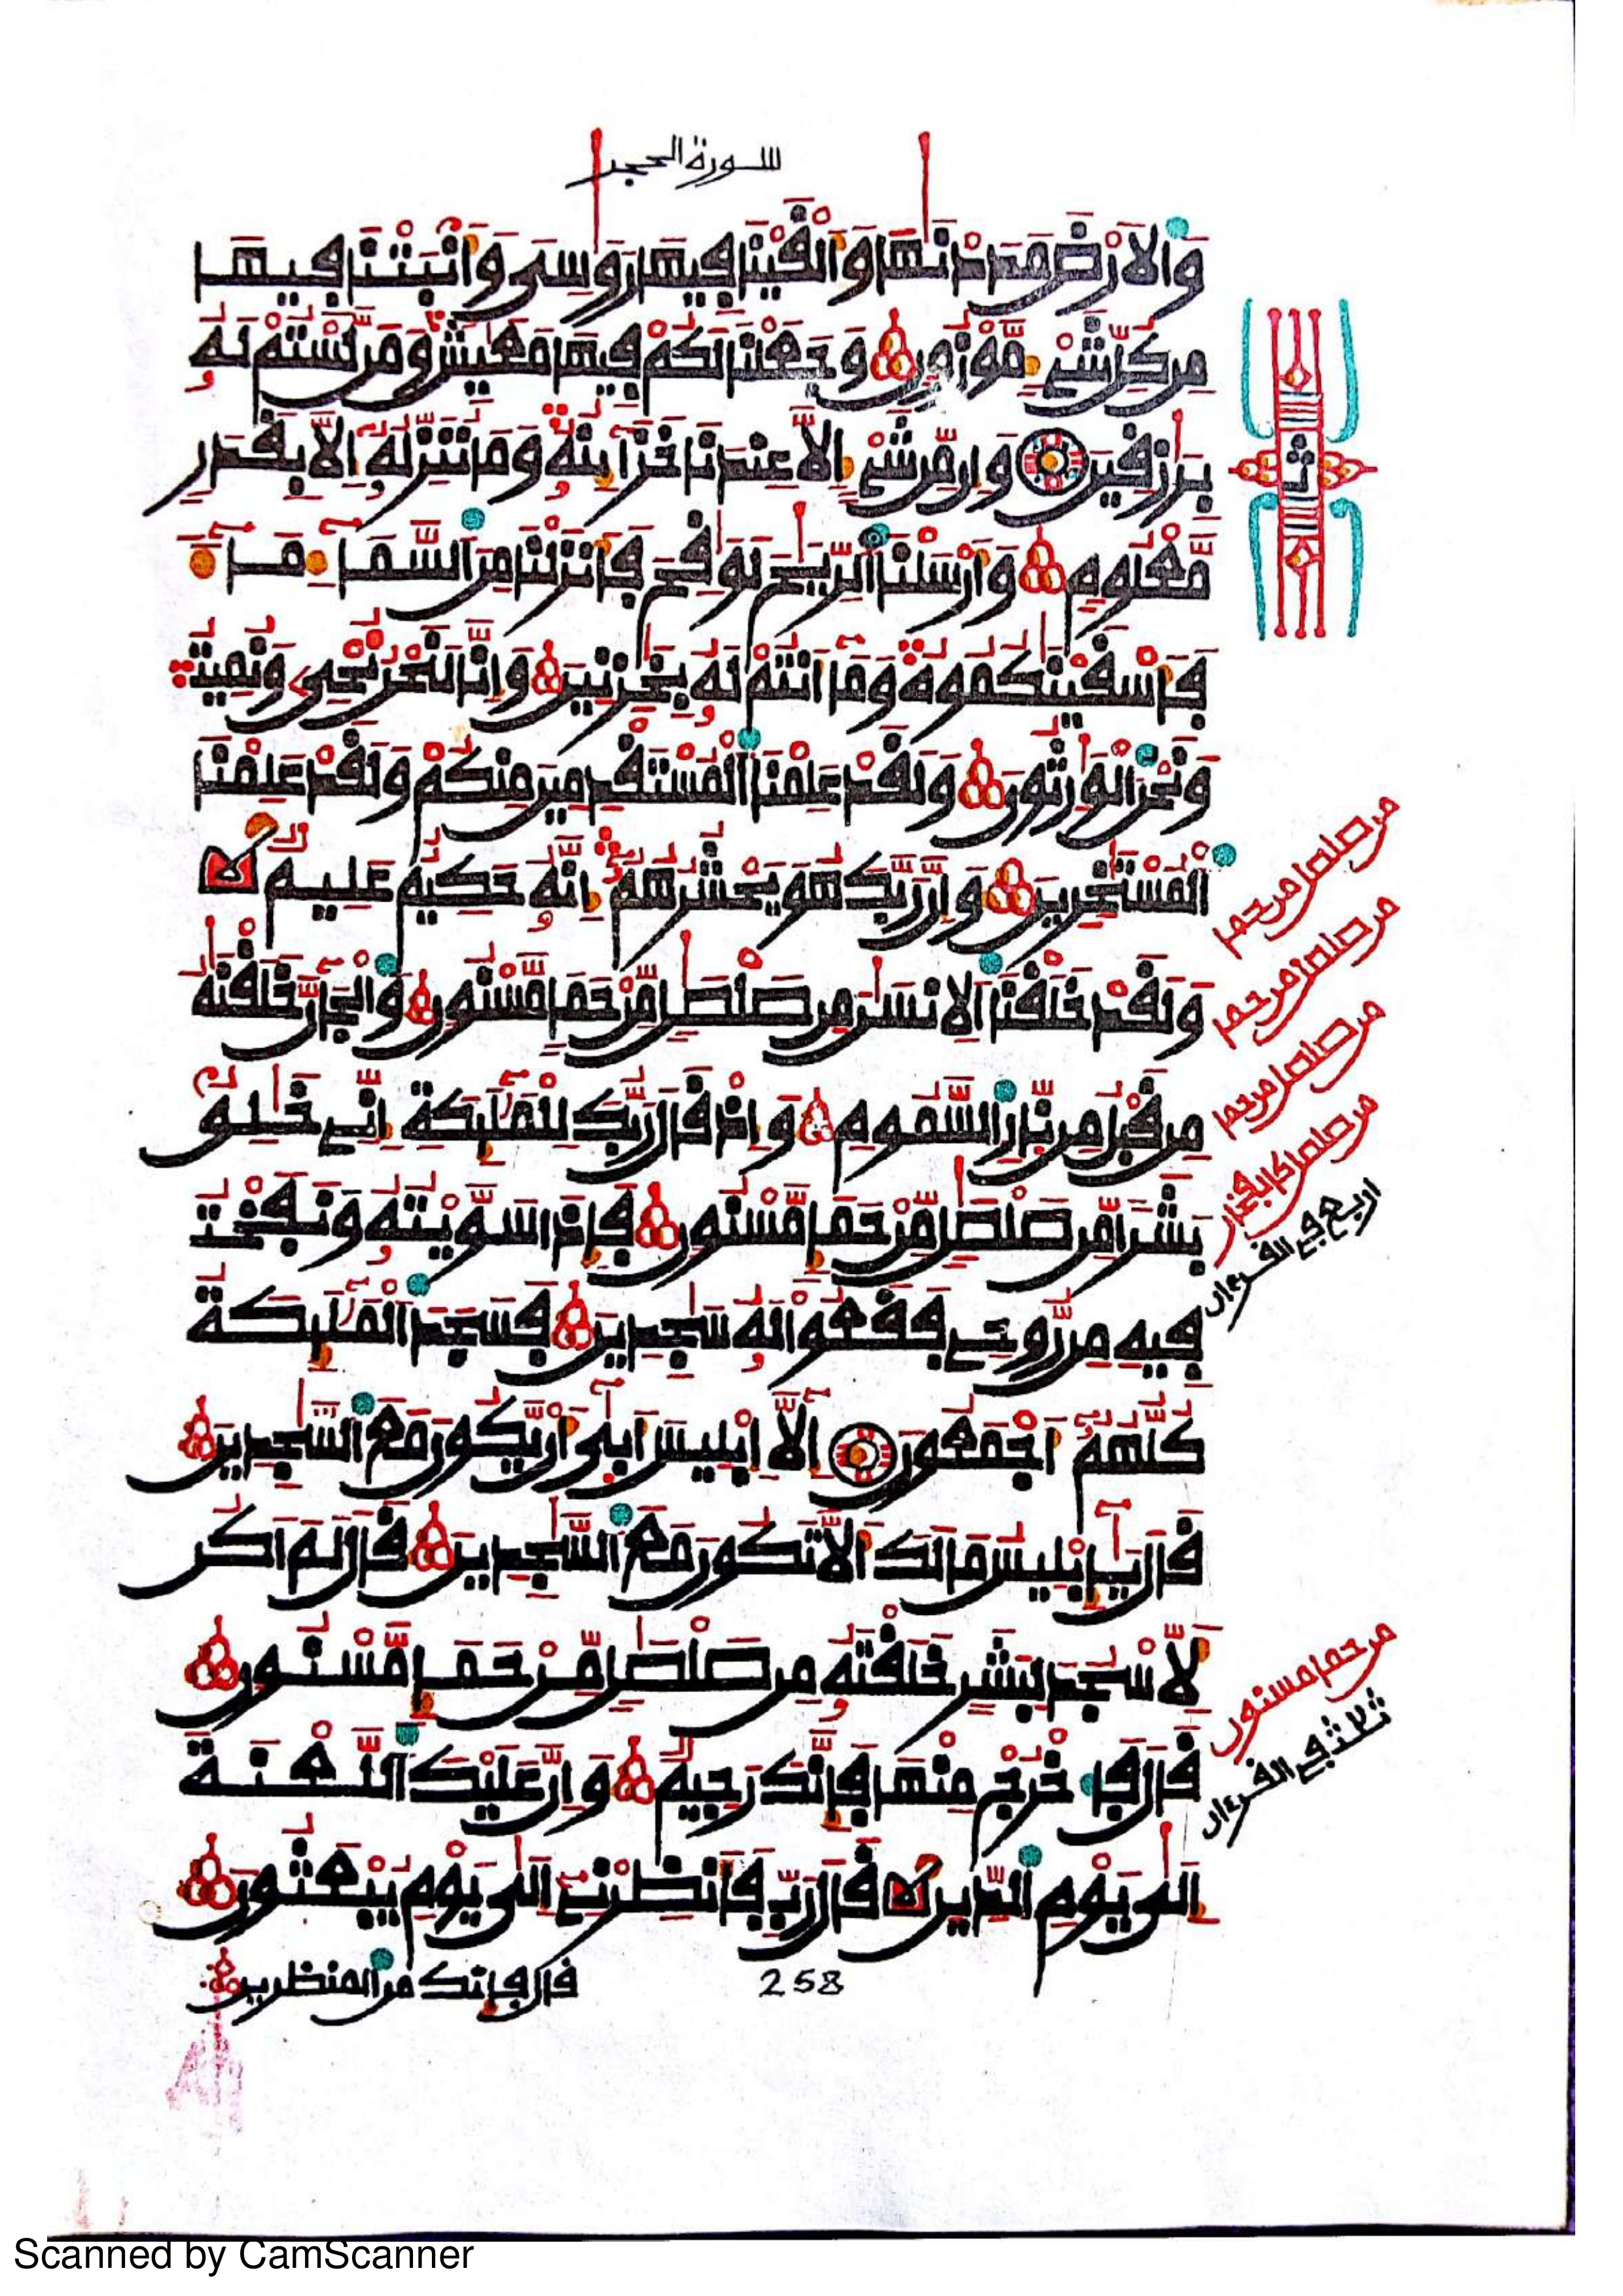 سورة الحجر
وَالَارْضَ مَدَدْنَٰهَا وَأَلْقَيْنَا فِيهَا رَوَٰسِىَ وَأَنۢبَتْنَا فِيهَا
مِن كُلِّ شَىْءٍ مَّوْزُونٍ وَجَعَلْنَا لَكُمْ فِيهَا مَعَٰيِشَ وَمَن لَّسْتُمْ لَهُۥ
بِرَٰزِقِينَ وَإِن مِّن شَىْءٍ اِلَّا عِندَنَا خَزَآئِنُهُۥ وَمَا نُنَزِّلُهُۥٓ إِلَّا بِقَدَرٍ
مَّعْلُومٍ وَأَرْسَلْنَا الرِّيَٰحَ لَوَٰقِحَ فَأَنزَلْنَا مِنَ السَّمَآءِ مَآءً
فَأَسْقَيْنَٰكُمُوهُ وَمَآ أَنتُمْ لَهُۥ بِخَٰزِنِينَ وَإِنَّا لَنَحْنُ نُحْىِۦ وَنُمِيتُ
وَنَحْنُ الْوَٰرِثُونَ وَلَقَدْ عَلِمْنَا الْمُسْتَقْدِمِينَ مِنكُمْ وَلَقَدْ عَلِمْنَا
الْمُسْتَٰٔخِرِينَ وَإِنَّ رَبَّكَ هُوَ يَحْشُرُهُمُۥٓ إِنَّهُۥ حَكِيمٌ عَلِيمٌ
وَلَقَدْ خَلَقْنَا الِانسَٰنَ مِن صَلْصَٰلٍ مِّنْ حَمَإٍ مَّسْنُونٍ وَالْجَآنَّ خَلَقْنَٰهُ
مِن قَبْلُ مِن نَّارِ السَّمُومِ وَإِذْ قَالَ رَبُّكَ لِلْمَلَٰٓئِكَةِ إِنِّى خَٰلِقٌ
بَشَرًا مِّن صَلْصَٰلٍ مِّنْ حَمَإٍ مَّسْنُونٍ فَإِذَا سَوَّيْتُهُۥ وَنَفَخْتُ
فِيهِ مِن رُّوحِى فَقَعُوا لَهُۥ سَٰجِدِينَ فَسَجَدَ الْمَلَٰٓئِكَةُ
كُلُّهُمُۥٓ أَجْمَعُونَ إِلَّآ إِبْلِيسَ أَبَىٰٓ أَن يَّكُونَ مَعَ السَّٰجِدِينَ
قَالَ يَٰٓإِبْلِيسُ مَالَكَ أَلَّا تَكُونَ مَعَ السَّٰجِدِينَ قَالَ لَمَ اَكُن
لِّأَسْجُدَ لِبَشَرٍ خَلَقْتَهُۥ مِن صَلْصَٰلٍ مِّنْ حَمَإٍ مَّسْنُونٍ
قَالَ فَاخْرُجْ مِنْهَا فَإِنَّكَ رَجِيمٌ وَإِنَّ عَلَيْكَ اللَّعْنَةَ
إِلَىٰ يَوْمِ الدِّينِ قَالَ رَبِّ فَأَنظِرْنِى إِلَىٰ يَوْمِ يُبْعَثُونَ
قال فإنك من المنظرين
258
ث
من صلصل من حمإ
من صلصل من حمإ
من صلصل من حمإ
من صلصل كالفخار
اربع في القرءان
من حمإ مسنون
ثلاث في القرءان
Scanned by CamScanner